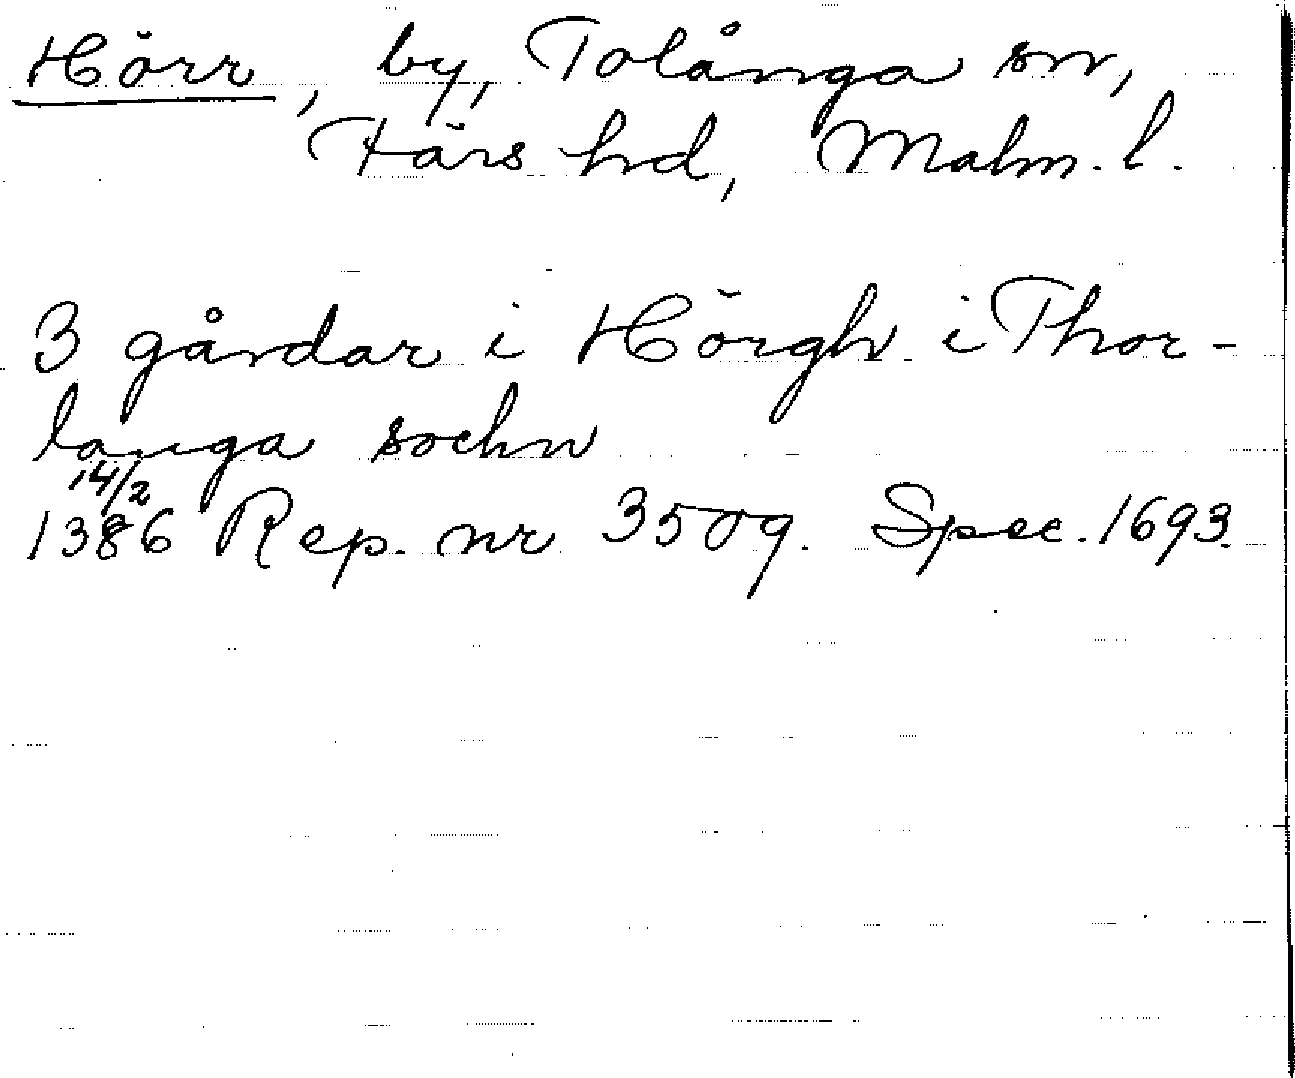 Hörr, by, Tolånga sn,
Färs hd, Malm. l.
3 gårdar i Hörgh i Thor-
langa sochn
14/2
1386 Rep. nr 3509. Spec. 1693.